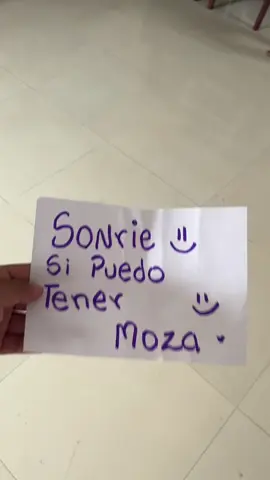 Sonrie
Si Puedo
Tener
Moza